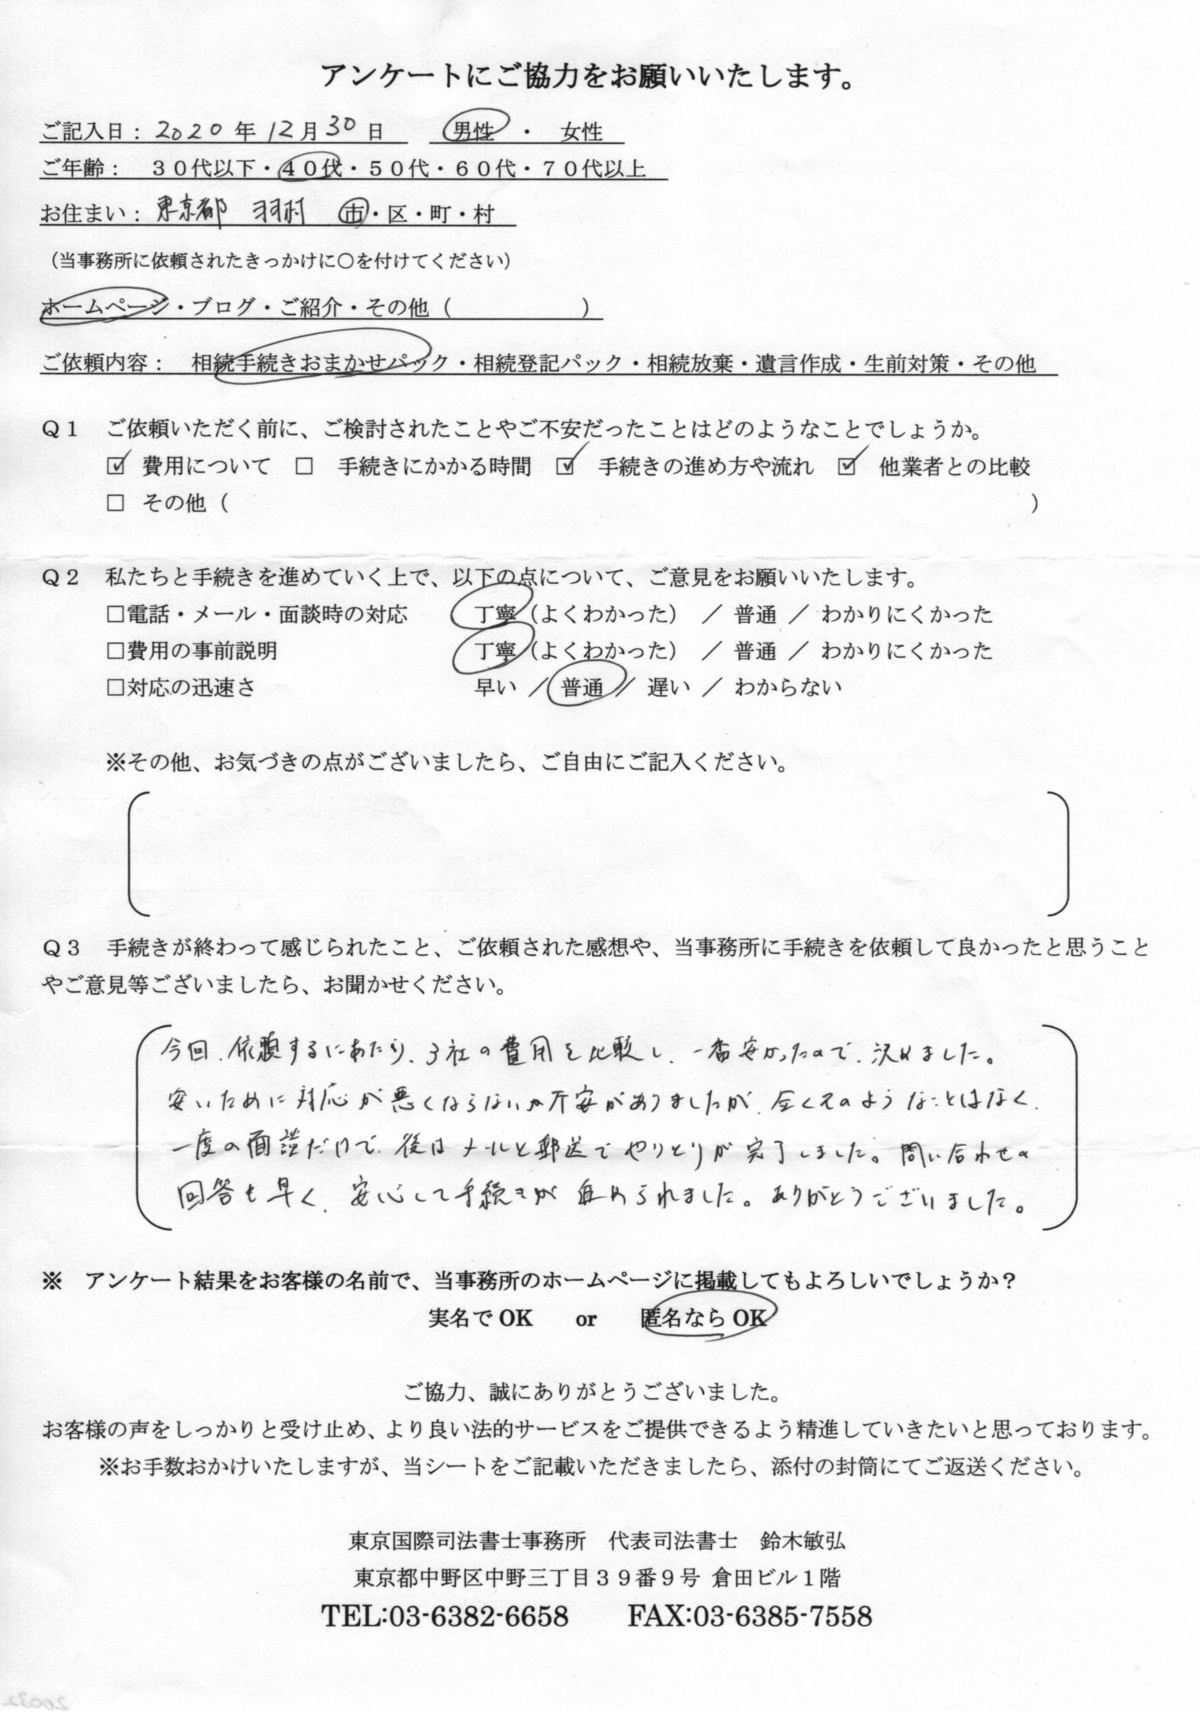 アンケートにご協力をお願いいたします。
ご記入日： 2020 年 12 月 30 日　　男性　・　女性
ご年齢：　３０代以下・４０代・５０代・６０代・７０代以上
お住まい： 東京都　羽村　市・区・町・村
（当事務所に依頼されたきっかけに○を付けてください）
ホームページ・ブログ・ご紹介・その他（　　　　　　）
ご依頼内容：　相続手続きおまかせパック・相続登記パック・相続放棄・遺言作成・生前対策・その他
Ｑ１　ご依頼いただく前に、ご検討されたことやご不安だったことはどのようなことでしょうか。
☑ 費用について　□　手続きにかかる時間　☑　手続きの進め方や流れ　☑　他業者との比較
□ その他（　　　　　　　　　　　　　　　　　　　　　　　　　　　　　　）
Ｑ２　私たちと手続きを進めていく上で、以下の点について、ご意見をお願いいたします。
□電話・メール・面談時の対応　　　丁寧（よくわかった）　／　普通　／　わかりにくかった
□費用の事前説明　　　丁寧（よくわかった）　／　普通　／　わかりにくかった
□対応の迅速さ　　　早い　／　普通　／　遅い　／　わからない
※その他、お気づきの点がございましたら、ご自由にご記入ください。
Ｑ３　手続きが終わって感じられたこと、ご依頼された感想や、当事務所に手続きを依頼して良かったと思うこと
やご意見等ございましたら、お聞かせください。
今回、依頼するにあたり、3社の費用を比較し、一番安かったので、決めました。
安いために対応が悪くならないか不安がありましたが、全くそのようなことはなく、
一度の面談だけで、後はメールと郵送でやりとりが完了しました。問い合わせの
回答も早く、安心して手続きが進められました。ありがとうございました。
※　アンケート結果をお客様の名前で、当事務所のホームページに掲載してもよろしいでしょうか？
実名で OK　　or　　匿名なら OK
ご協力、誠にありがとうございました。
お客様の声をしっかりと受け止め、より良い法的サービスをご提供できるよう精進していきたいと思っております。
※お手数おかけいたしますが、当シートをご記載いただきましたら、添付の封筒にてご返送ください。
東京国際司法書士事務所　代表司法書士　鈴木敏弘
東京都中野区中野三丁目３９番９号 倉田ビル１階
TEL:03-6382-6658　　FAX:03-6385-7558